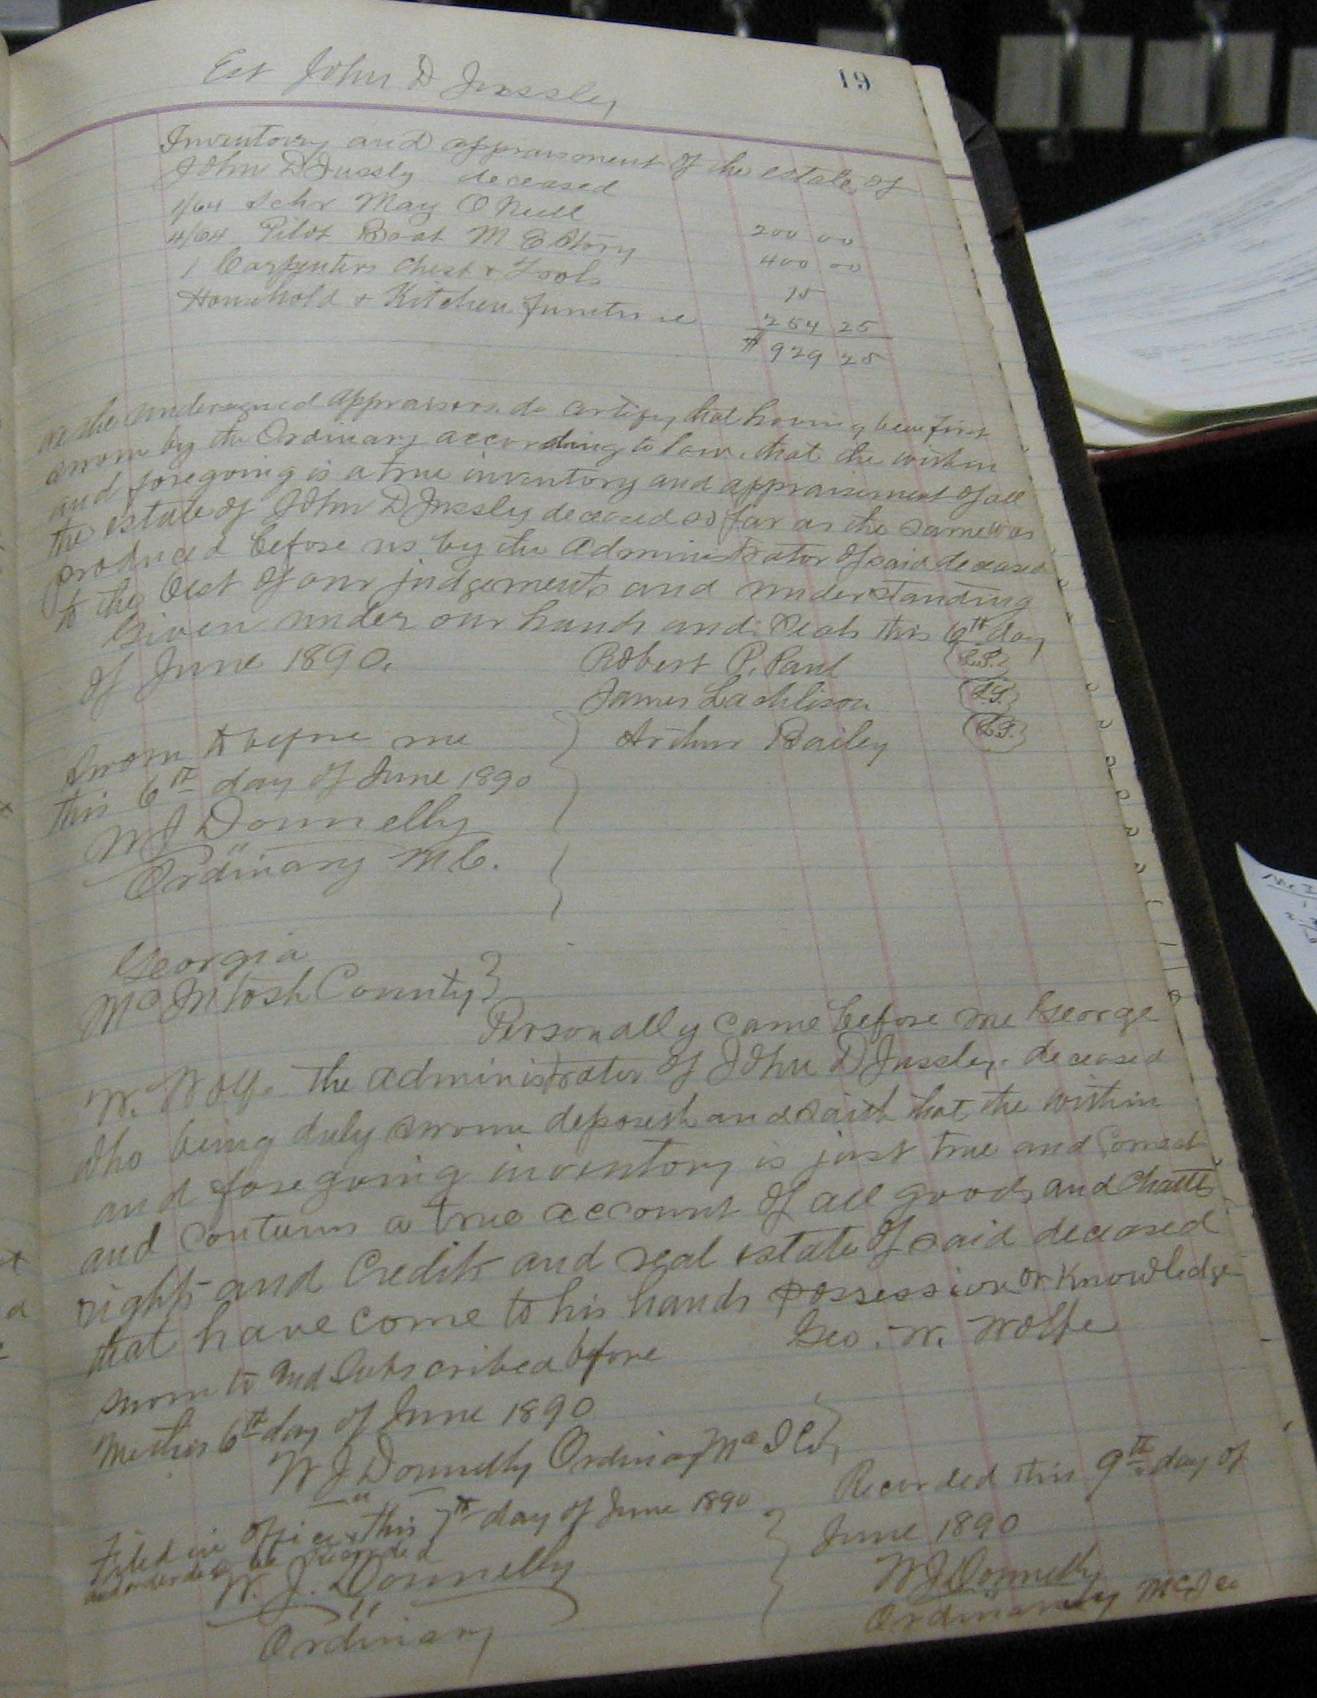 Est John D Jussley
19
Inventory and appraisment of the estate of
John D Jussly deceased
1/64 Schr May O Neill 200 00
4/64 Pilot Boat M E Story 400 00
1 Carpenters Chest & Tools 75
Household & Kitchen furniture 254 25
$ 929 25
We the undersigned appraisers do certify that having been first
sworn by the Ordinary according to law, that the within
and foregoing is a true inventory and appraisement of all
the estate of John D Jussley deceased so far as the same was
produced before us by the administrator of said deceased
to the best of our judgements and understanding
Given under our hands and Seals this 6th day
of June 1890.
Robert P. Paul L.S.
James Lachlison L.S.
Arthur Bailey L.S.
Sworn to before me
this 6th day of June 1890
W J Donnelly
Ordinary M C.
Georgia
McIntosh County
Personally came before me George
W. Wolfe The administrator of John D Jussley deceased
who being duly sworn deposeth and saith that the within
and foregoing inventory is just true and Correct
and contains a true account of all goods and chattls
rights and Credits and real estate of said deceased
that have come to his hands possession or knowledge
Geo. W. Wolfe
sworn to and Subscribed before
me this 6th day of June 1890
W J Donnelly Ordinary Mc I Co
Filed in office this 7th day of June 1890
and ordered to be recorded
W. J. Donnelly
Ordinary
Recorded this 9th day of
June 1890
W J Donnelly
Ordinary Mc I Co